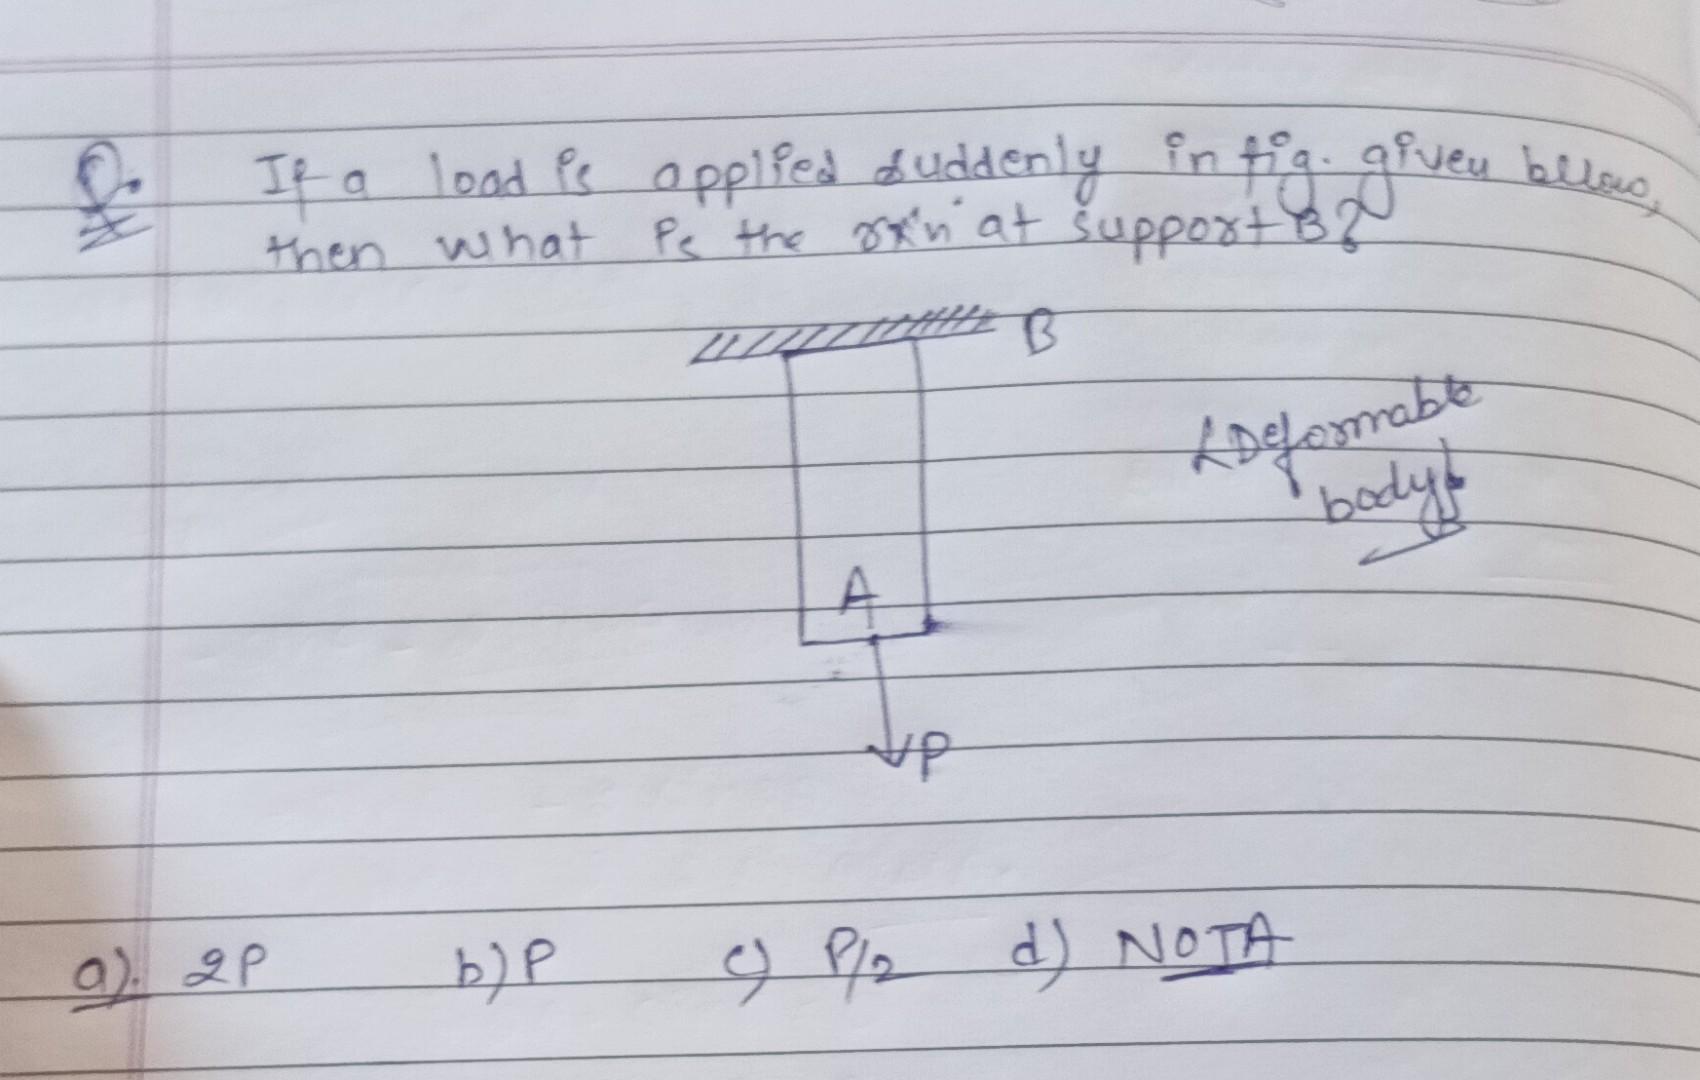 Q. If a load is applied suddenly in fig. given bellow,
then what is the rxn at support B?
B
{Deformable
body}
A
P
a). 2P b) P c) P/2 d) NOTA